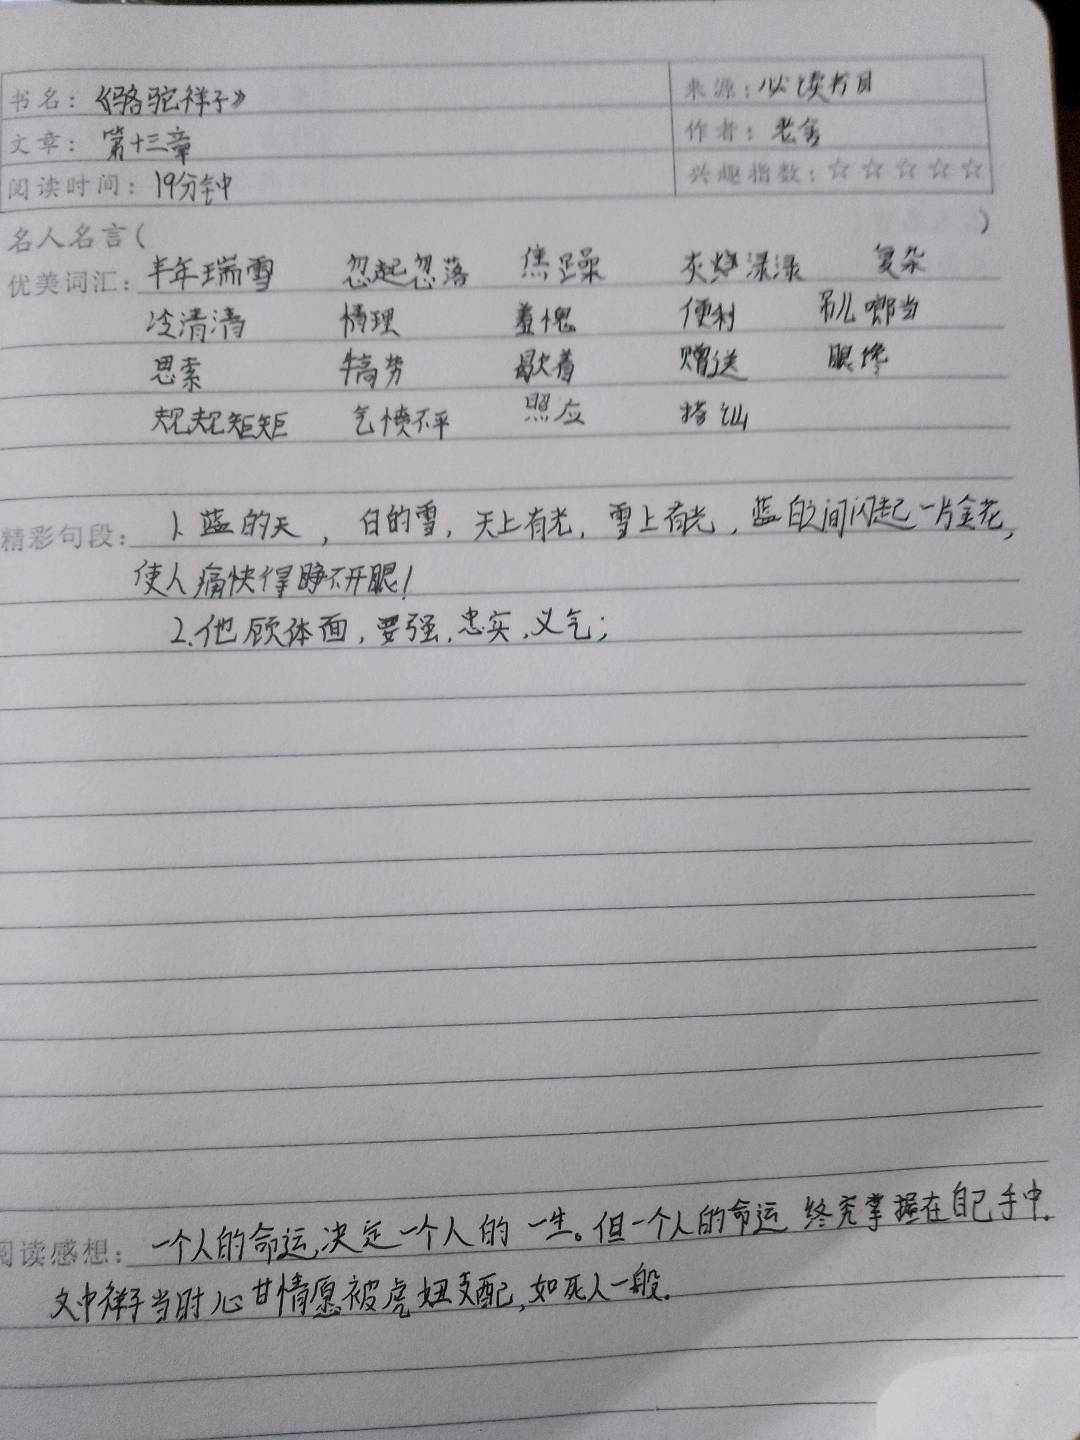 书名：《骆驼祥子》 来源：必读书目
文章：第十三章 作者：老舍
阅读时间：19分钟 兴趣指数：☆☆☆☆☆
名人名言( )
优美词汇：丰年瑞雪 忽起忽落 焦躁 灰绿 复杂
冷清清 情理 羞愧 便利 吊儿啷当
思索 犒劳 歇着 赠送 眼馋
规规矩矩 气愤不平 照应 搭讪
精彩句段：1.蓝的天，白的雪，天上有光，雪上有光，蓝白之间闪起一片金花，
使人痛快得睁不开眼！
2.他顾体面，要强，忠实，义气；
阅读感想：一个人的命运，决定一个人的一生。但一个人的命运终究掌握在自己手中.
文中祥子当时心甘情愿被虎妞支配，如死人一般.